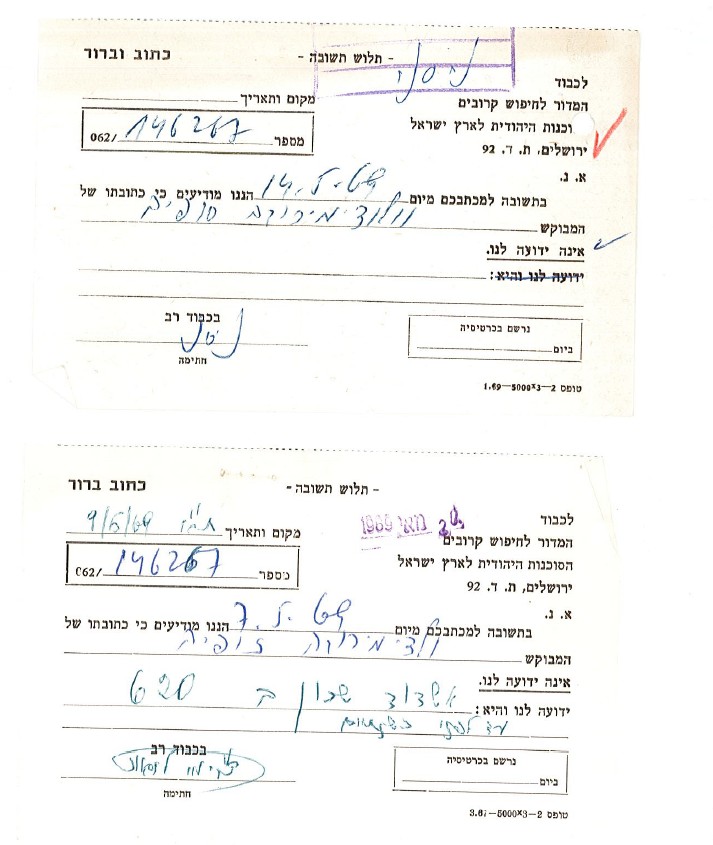 - תלוש תשובה -
כתוב וברור
לכבוד
המדור לחיפוש קרובים
וכנות היהודית לארץ ישראל
ירושלים, ת. ד. 92
מקום ותאריך
מספר 062/ 146267
א. נ.
בתשובה למכתבכם מיום 14.5.69 הננו מודיעים כי כתובתו של
המבוקש
אינה ידועה לנו.
ידועה לנו והיא:
בכבוד רב
חתימה
נרשם בכרטיסיה
ביום
טופס 2–3×5000–1.69
- תלוש תשובה -
כתוב ברור
לכבוד
המדור לחיפוש קרובים
הסוכנות היהודית לארץ ישראל
ירושלים, ת. ד. 92
מאי 1969
מקום ותאריך 9/5/69
מספר 062/ 146267
א. נ.
בתשובה למכתבכם מיום 7.5.69 הננו מודיעים כי כתובתו של
המבוקש
אינה ידועה לנו.
ידועה לנו והיא: אשדוד שכון ב 620
בכבוד רב
חתימה
נרשם בכרטיסיה
ביום
טופס 2–3×5000–3.67